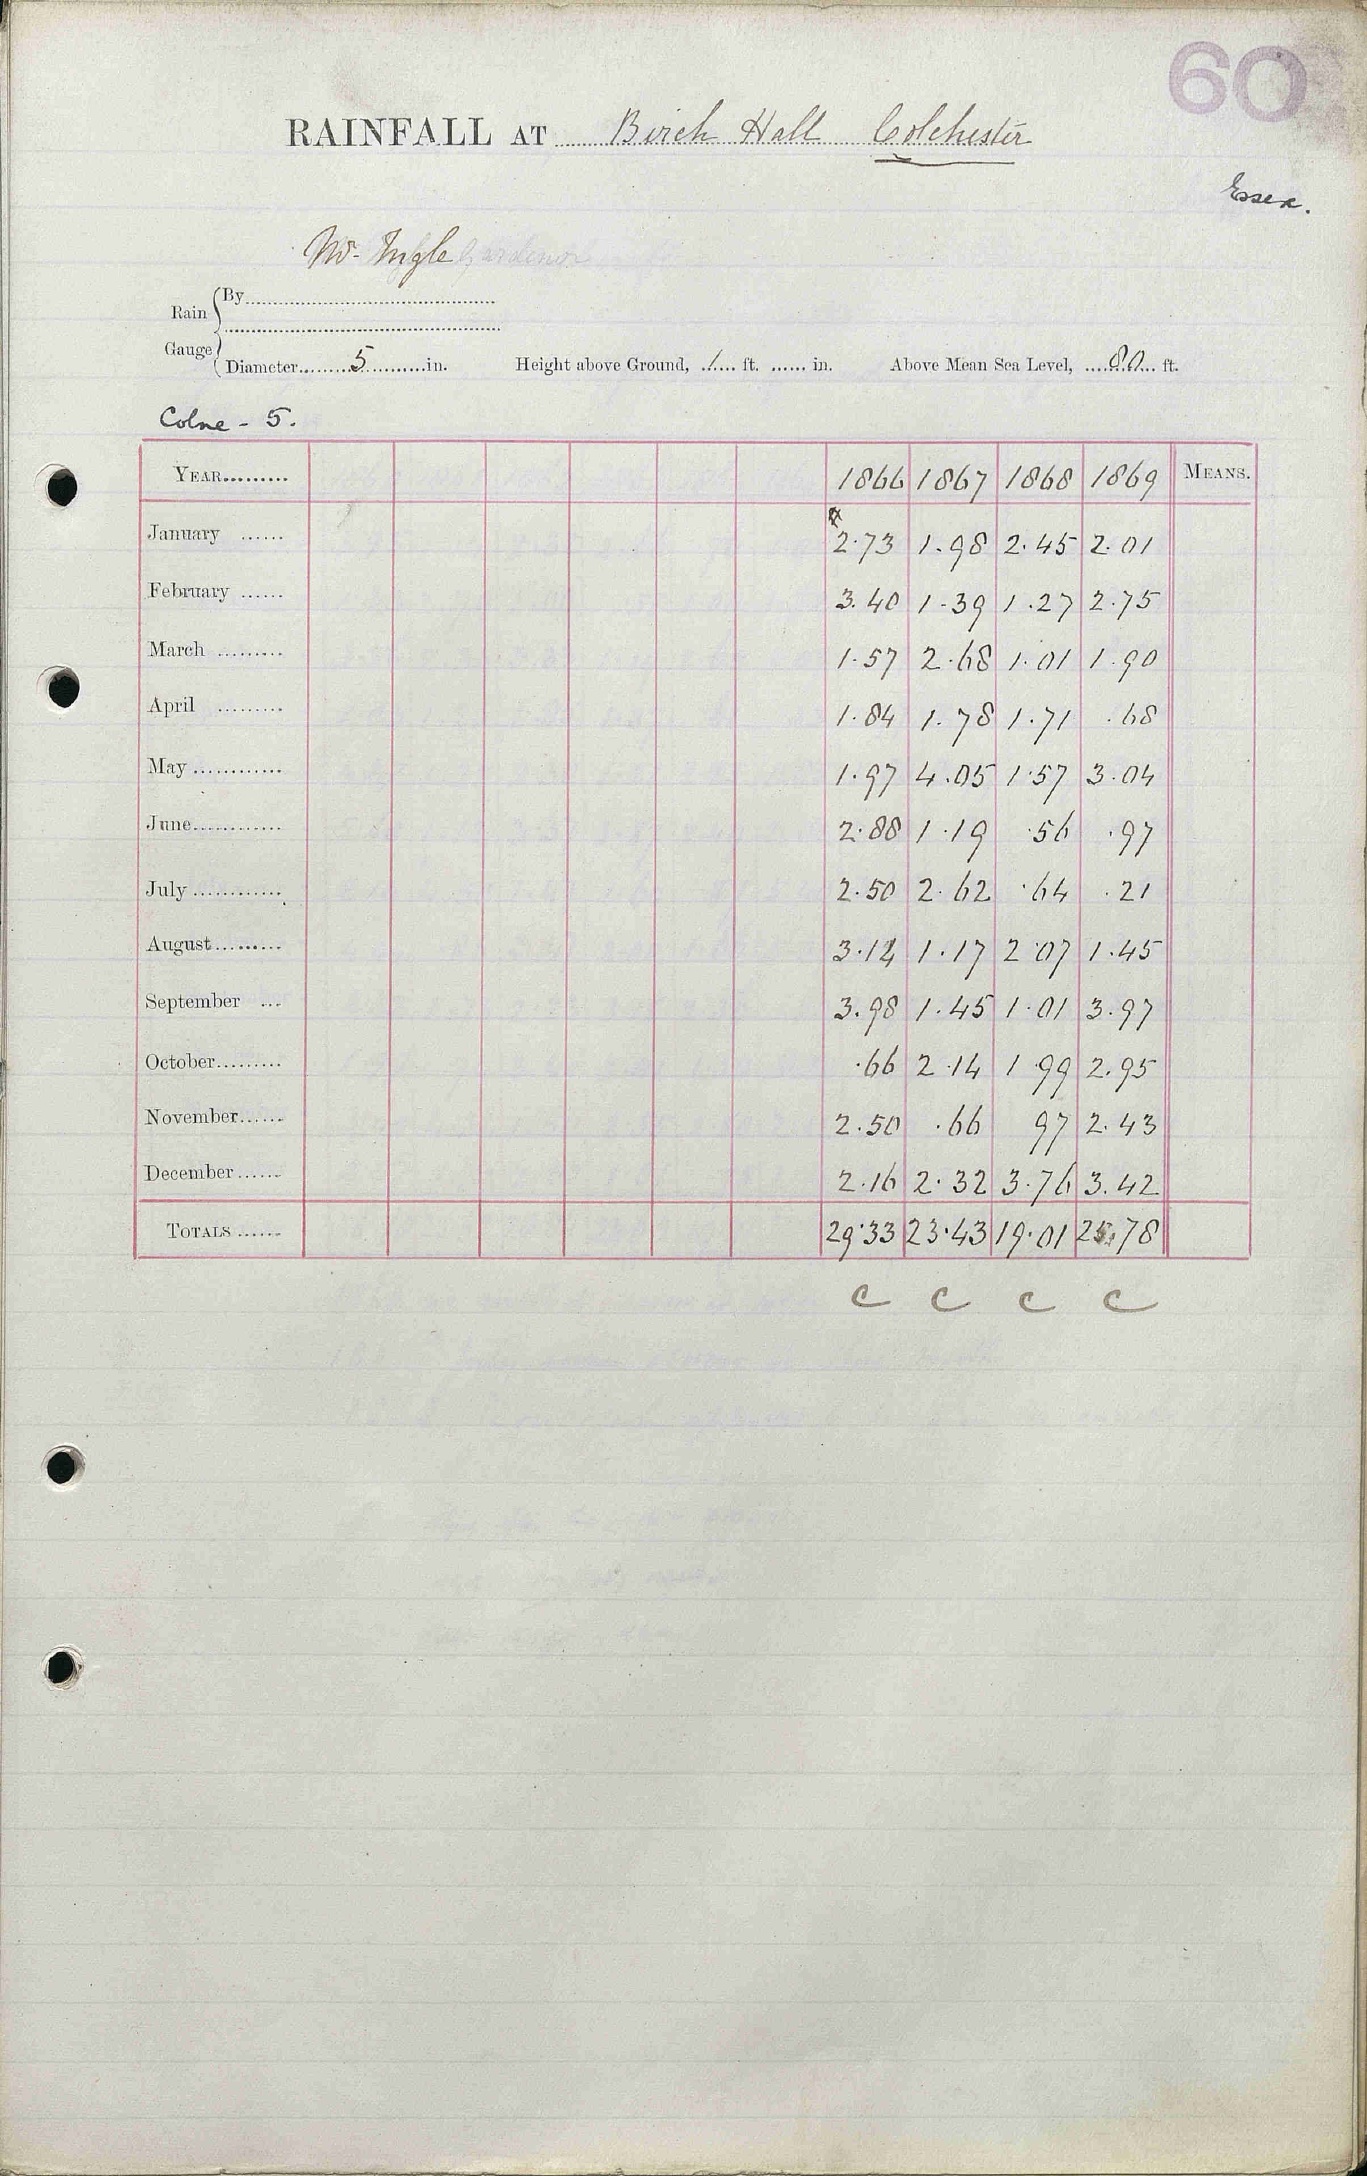 60
RAINFALL AT Birch Hall Colchester
Essex.
Mr. Ingle Gardener
Rain Gauge
By
Diameter 5 in. Height above Ground, 1 ft. in. Above Mean Sea Level, 80 ft.
Colne - 5.
YEAR 1866 1867 1868 1869 MEANS.
January 2.73 1.98 2.45 2.01
February 3.40 1.39 1.27 2.75
March 1.57 2.68 1.01 1.90
April 1.84 1.78 1.71 .68
May 1.97 4.05 1.57 3.04
June 2.88 1.19 .56 .97
July 2.50 2.62 .64 .21
August 3.14 1.17 2.07 1.45
September 3.98 1.45 1.01 3.97
October .66 2.14 1 99 2.95
November 2.50 .66 97 2.43
December 2.16 2.32 3.76 3.42
TOTALS 29.33 23.43 19.01 25.78
C C C C